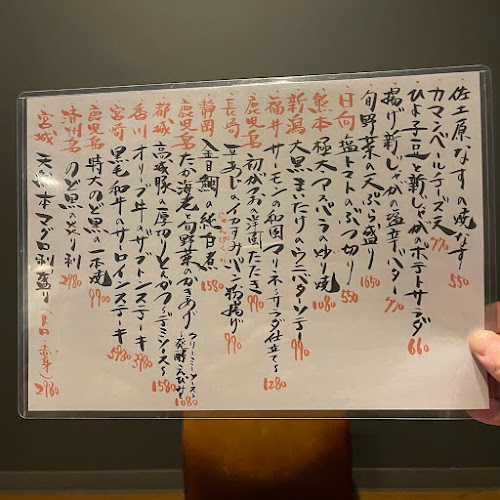 佐土原なすの焼なす 550
カマンベールチーズ天 770
ひよ子豆と新じゃがのポテトサラダ 660
揚げ新じゃがの塩辛バター 770
旬野菜の天ぷら盛り 1650
日向 塩トマトのぶつ切り 550
熊本 極太アスパラの炒り焼 1080
新潟 大黒まいたけのウニバターソテー 990
福井 サーモンの和風マリネ〜サラダ仕立て〜 1280
鹿児島 初がつおの洋風たたき 990
長崎 豆あじのカラカラパン粉揚げ 990
静岡 入音鯛の純白煮 1580
鹿児島 たか海老と旬野菜のかきあげ クリーミーソース 〜発酵えびみそ 1080
都城 高城豚の厚切りとんかつ〜デミソース〜 1580
香川 オリーブ牛のザブトンステーキ 3980
宮崎 黒毛和牛のサーロインステーキ 5980
鹿児島 特大のど黒の一本焼 9900
済州島 のど黒の炙り刺 2980
宮城 天然本マグロ刺盛り(トロ・赤身) 2980